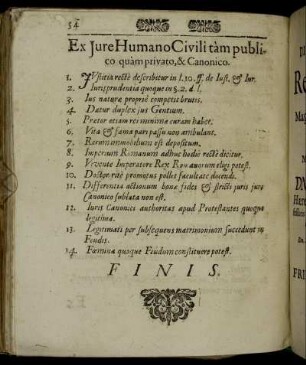 54
Ex Jure Humano Civili tàm publi-
co quàm privato, & Canonico.
1. JVstitia rectè describitur in l. 10. ff. de Iust. & Iur.
2. Jurisprudentia quoque in §. 2. d. l.
3. Ius naturæ propriè competit brutis.
4. Datur duplex jus Gentium.
5. Prætor etiam res minimas curam habet.
6. Vita & fama pari passu non ambulant.
7. Rerum immobilium est depositum.
8. Imperium Romanum adhuc hodie rectè dicitur.
9. Vivente Imperatore Rex Romanorum eligi potest.
10. Doctor ritè promotus pollet facultate docendi.
11. Differentia actionum bonæ fidei & stricti juris jure
Canonico sublata non est.
12. Iuris Canonici authoritas apud Protestantes quoque
legitima.
13. Legitimati per subsequens matrimonium succedunt in
Feudis.
14. Fœmina quoque Feudum constituere potest.
FINIS.